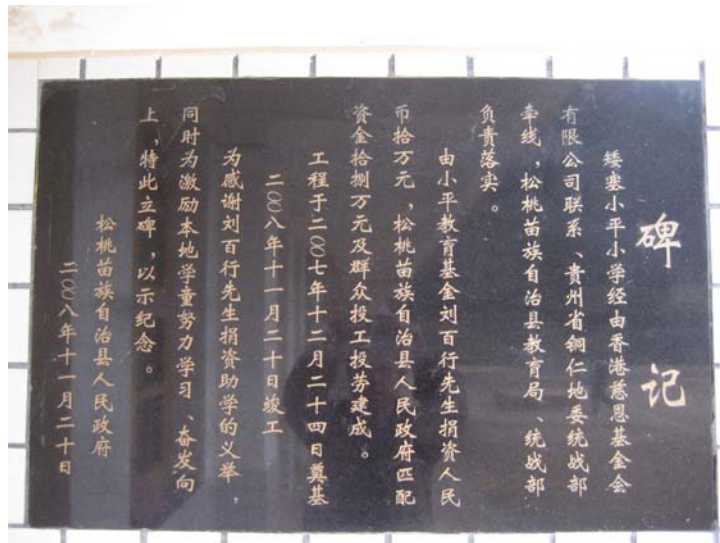 碑记
矮寨小平小学经由香港慈恩基金会
有限公司联系、贵州省铜仁地委统战部
牵线，松桃苗族自治县教育局、统战部
负责落实。
由小平教育基金刘百行先生捐资人民
币拾万元，松桃苗族自治县人民政府匹配
资金拾捌万元及群众投工投劳建成。
工程于二〇〇七年十二月二十四日奠基
二〇〇八年十一月二十日竣工
为感谢刘百行先生捐资助学的义举，
同时为激励本地学童努力学习、奋发向
上，特此立碑，以示纪念。
松桃苗族自治县人民政府
二〇〇八年十一月二十日